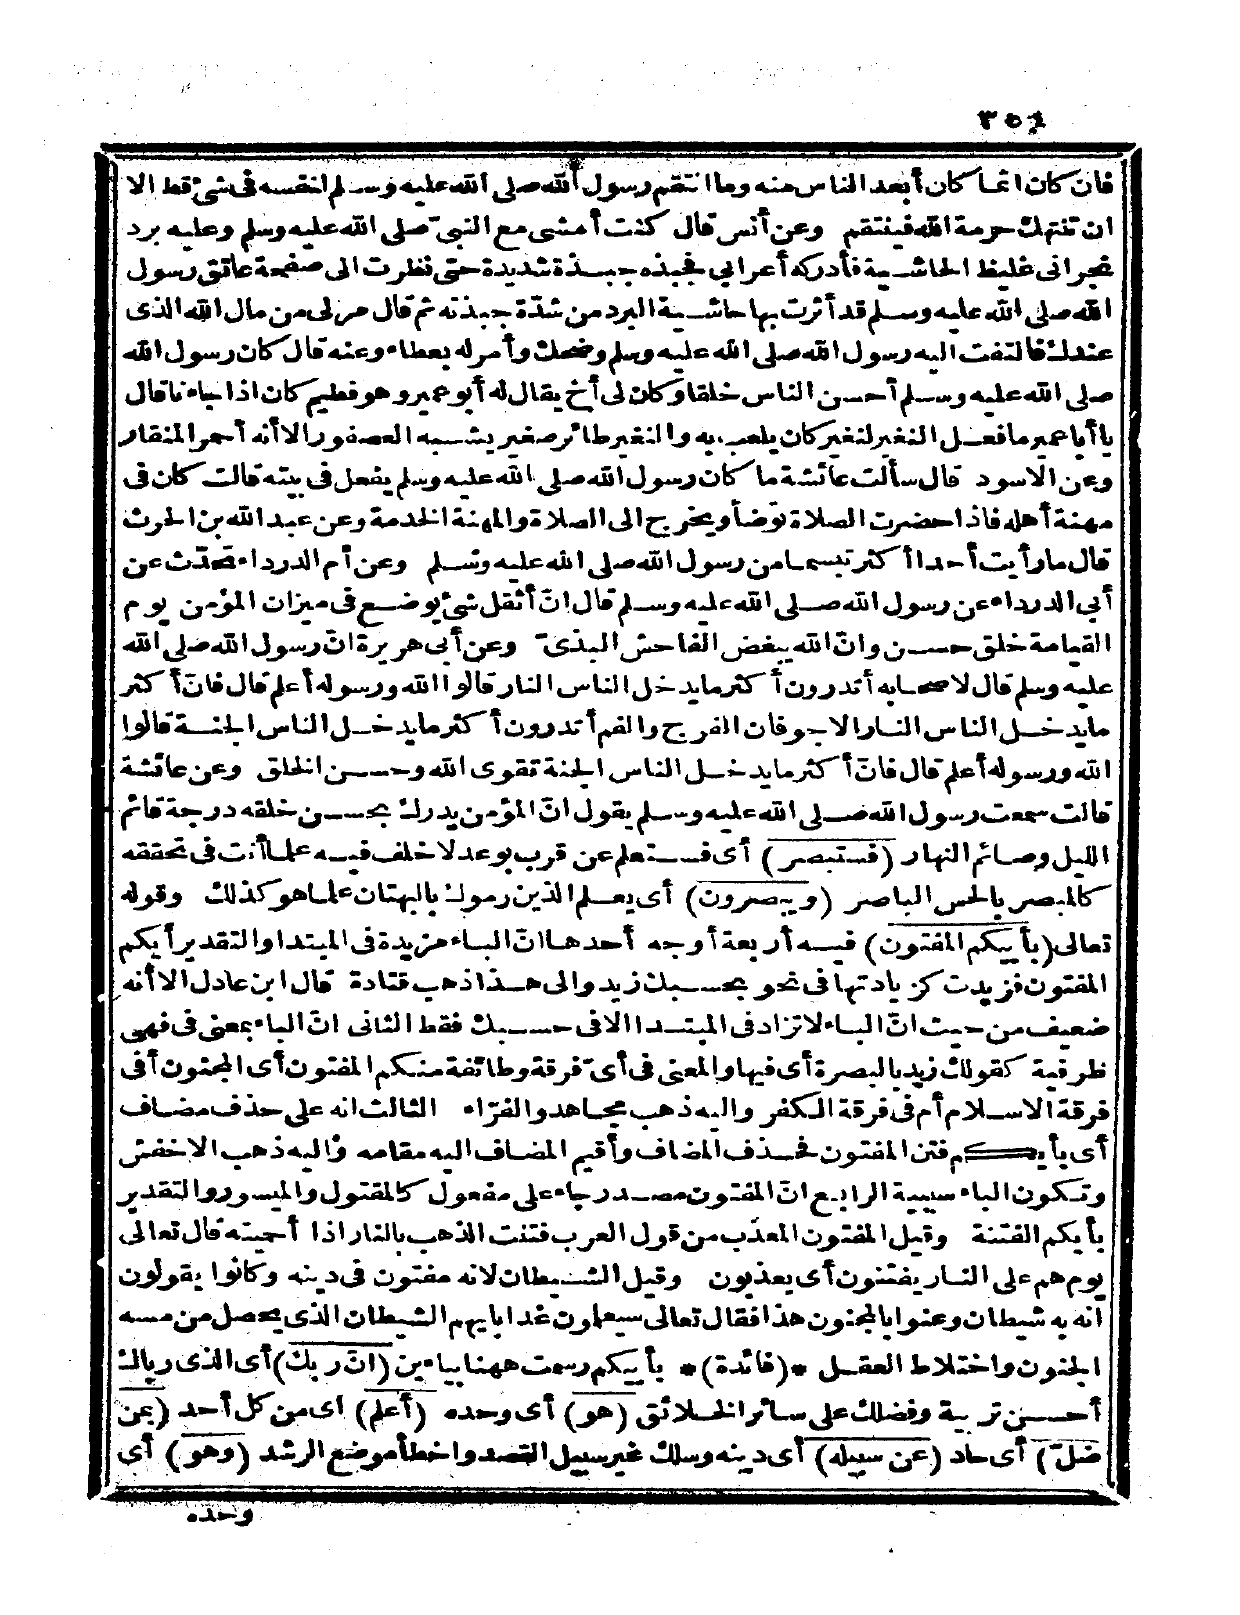 ٣٥٤
فان كان اثما كان أبعد الناس منه وما انتقم رسول الله صلى الله عليه وسلم لنفسه فى شئ قط الا
ان تنتهك حرمة الله فينتقم وعن أنس قال كنت أمشى مع النبىّ صلى الله عليه وسلم وعليه برد
نجرانى غليظ الحاشية فأدركه أعرابي فجبذه جبذة شديدة حتى نظرت الى صفحة عاتق رسول
الله صلى الله عليه وسلم قد أثرت بها حاشية البرد من شدّة جبذته ثم قال مر لى من مال الله الذى
عندك فالتفت اليه رسول الله صلى الله عليه وسلم وضحك وأمر له بعطاء وعنه قال كان رسول الله
صلى الله عليه وسلم أحسن الناس خلقا وكان لى أخ يقال له أبو عمير وهو فطيم كان اذا جاء ناقال
يا أبا عمير ما فعل النغير لنغير كان يلعب به والنغير طائر صغير يشبه العصفور الا أنه أحمر المنقار
وعن الاسود قال سألت عائشة ما كان رسول الله صلى الله عليه وسلم يفعل فى بيته قالت كان فى
مهنة أهله فاذا حضرت الصلاة توضأ ويخرج الى الصلاة والمهنة الخدمة وعن عبد الله بن الحرث
قال ما رأيت أحدا أكثر تبسما من رسول الله صلى الله عليه وسلم وعن أم الدرداء تحدّث عن
أبي الدرداء عن رسول الله صلى الله عليه وسلم قال انّ أثقل شئ يوضع فى ميزان المؤمن يوم
القيامة خلق حسن وانّ الله يبغض الفاحش البذىّ وعن أبى هريرة انّ رسول الله صلى الله
عليه وسلم قال لاصحابه أتدرون أكثر ما يدخل الناس النار قالوا الله ورسوله أعلم قال فانّ أكثر
ما يدخل الناس النار الاجوفان الفرج والفم أتدرون أكثر ما يدخل الناس الجنة قالوا
الله ورسوله أعلم قال فانّ أكثر ما يدخل الناس الجنة تقوى الله وحسن الخلق وعن عائشة
قالت سمعت رسول الله صلى الله عليه وسلم يقول انّ المؤمن يدرك بحسن خلقه درجة قائم
الليل وصائم النهار (فستبصر) أى فستعلم عن قرب بوعد لا خلف فيه علما أنت فى تحققه
كالمبصر بالحس الباصر (ويبصرون) أى يعلم الذين رموك بالبهتان علما هو كذلك وقوله
تعالى (بأييكم المفتون) فيه أربعة أوجه أحدها انّ الباء مزيدة فى المبتدا والتقدير أيكم
المفتون فزيدت كزيادتها فى نحو بحسبك زيد والى هذا ذهب قتادة قال ابن عادل الا أنه
ضعيف من حيث انّ الباء لا تزاد فى المبتدا الا فى حسبك فقط الثانى انّ الباء بمعنى فى فهى
ظرفية كقولك زيد بالبصرة أى فيها والمعنى فى أىّ فرقة وطائفة منكم المفتون أى المجنون أفى
فرقة الاسلام أم فى فرقة الكفر واليه ذهب مجاهد والفرّاء الثالث انه على حذف مضاف
أى بأيكم فتن المفتون فحذف المضاف وأقيم المضاف اليه مقامه واليه ذهب الاخفش
وتكون الباء سببية الرابع انّ المفتون مصدر جاء على مفعول كالمقتول والميسور والتقدير
بأيكم الفتنة وقيل المفتون المعذب من قول العرب فتنت الذهب بالنار اذا أحميته قال تعالى
يوم هم على النار يفتنون أى يعذبون وقيل الشيطان لانه مفتون فى دينه وكانوا يقولون
انه به شيطان وعنوا بالمجنون هذا فقال تعالى سيعلمون غدا بايهم الشيطان الذى يحصل من مسه
الجنون واختلاط العقل *(فائدة)* بأييكم رسمت ههنا بياءين (انّ ربك) أى الذى رباك
أحسن تربية وفضلك على سائر الخلائق (هو) أى وحده (أعلم) أى من كل أحد (بمن
ضلّ) أى حاد (عن سبيله) أى دينه وسلك غير سبيل القصد واخطأ موضع الرشد (وهو) أى
وحده